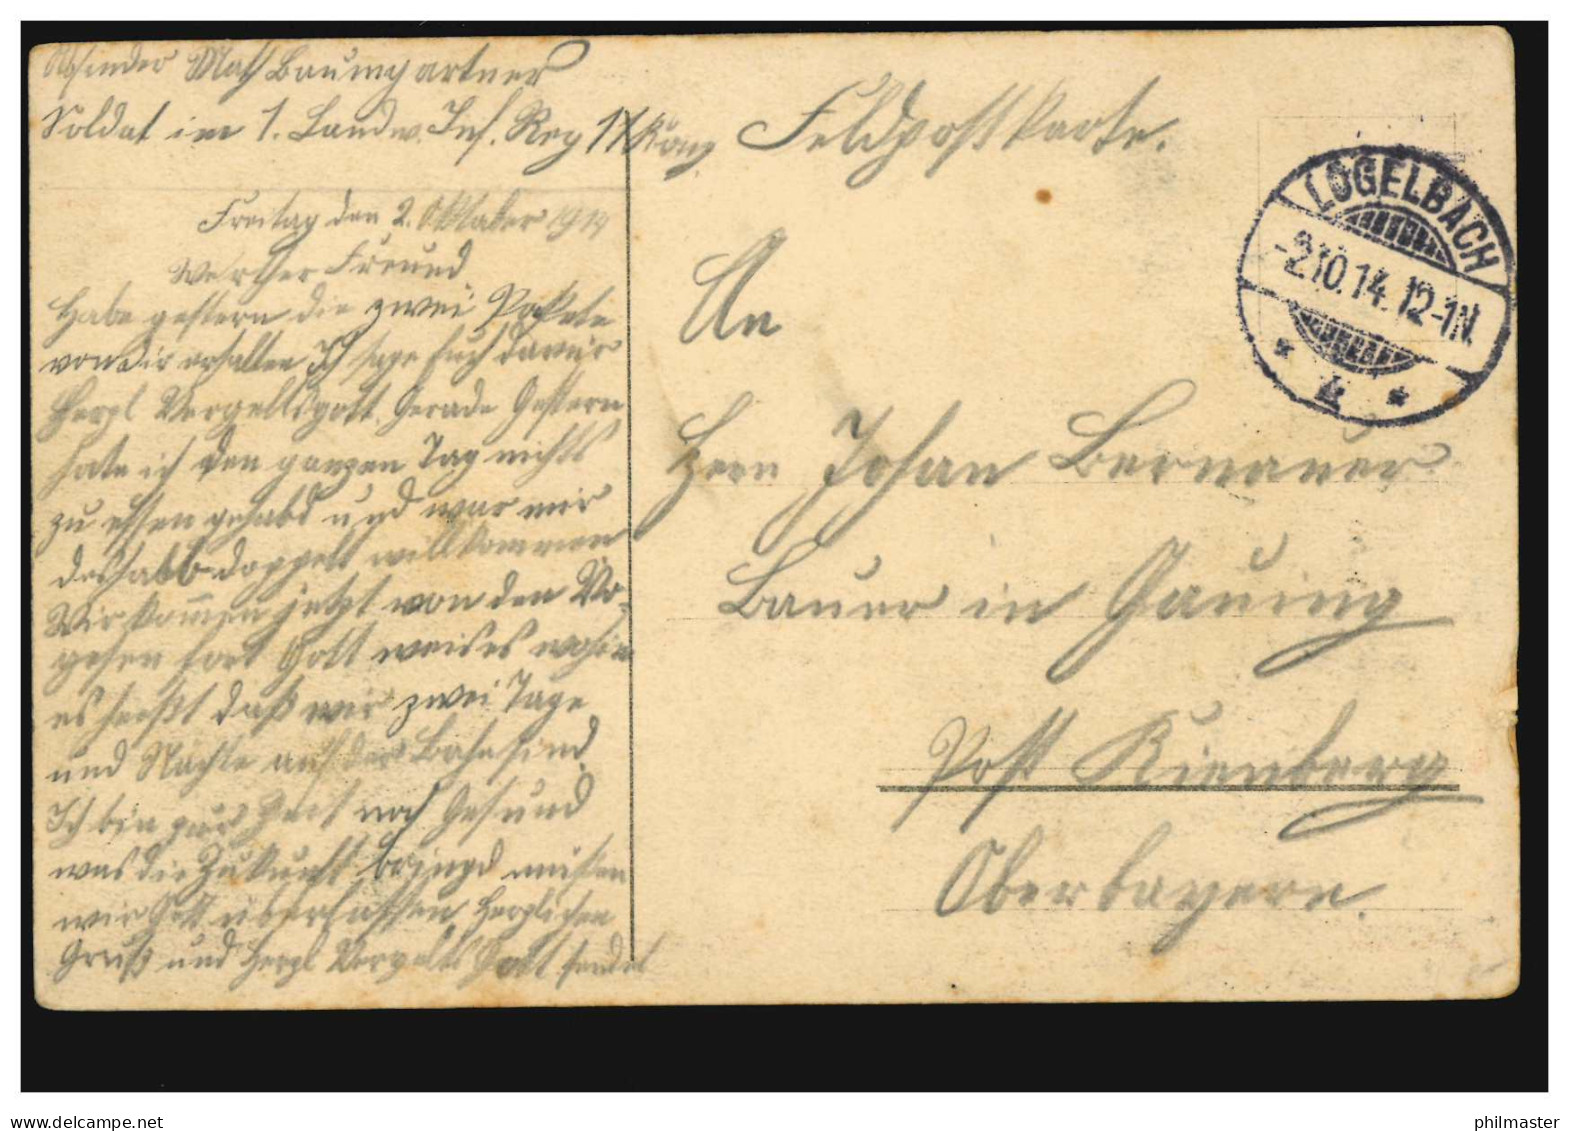 Absender Math Baumgartner
Soldat im 1. Landw. Inf. Reg 1. Komp
Freitag den 2. Oktober 1914
Werther Freund
Habe gestern die zwei Pakete
von dir erhalten Ich sage Euch dafür
Herzl Vergeltsgott. Gerade Gestern
hate ich den ganzen Tag nichts
zu essen gehabd und war mir
deshalb doppelt willkommen
Wir kommen jetzt von den Vo-
gesen fort Gott weis es wohin
es heißt daß wir zwei Tage
und Nächte auf der Bahn sind.
Ich bin zur Zeit noch Gesund
was die Zukunft bringd müssen
wir Gott überlassen. Herzlichen
Gruß und Herzl Vergelts Gott sendet
Feldpostkarte.
LOGELBACH
-2.10.14.12-1N.
* *
An
Herrn Johan Bernauer
Bauer in Gauing
Post Kienberg
Oberbayern.
philmaster.com
philmaster